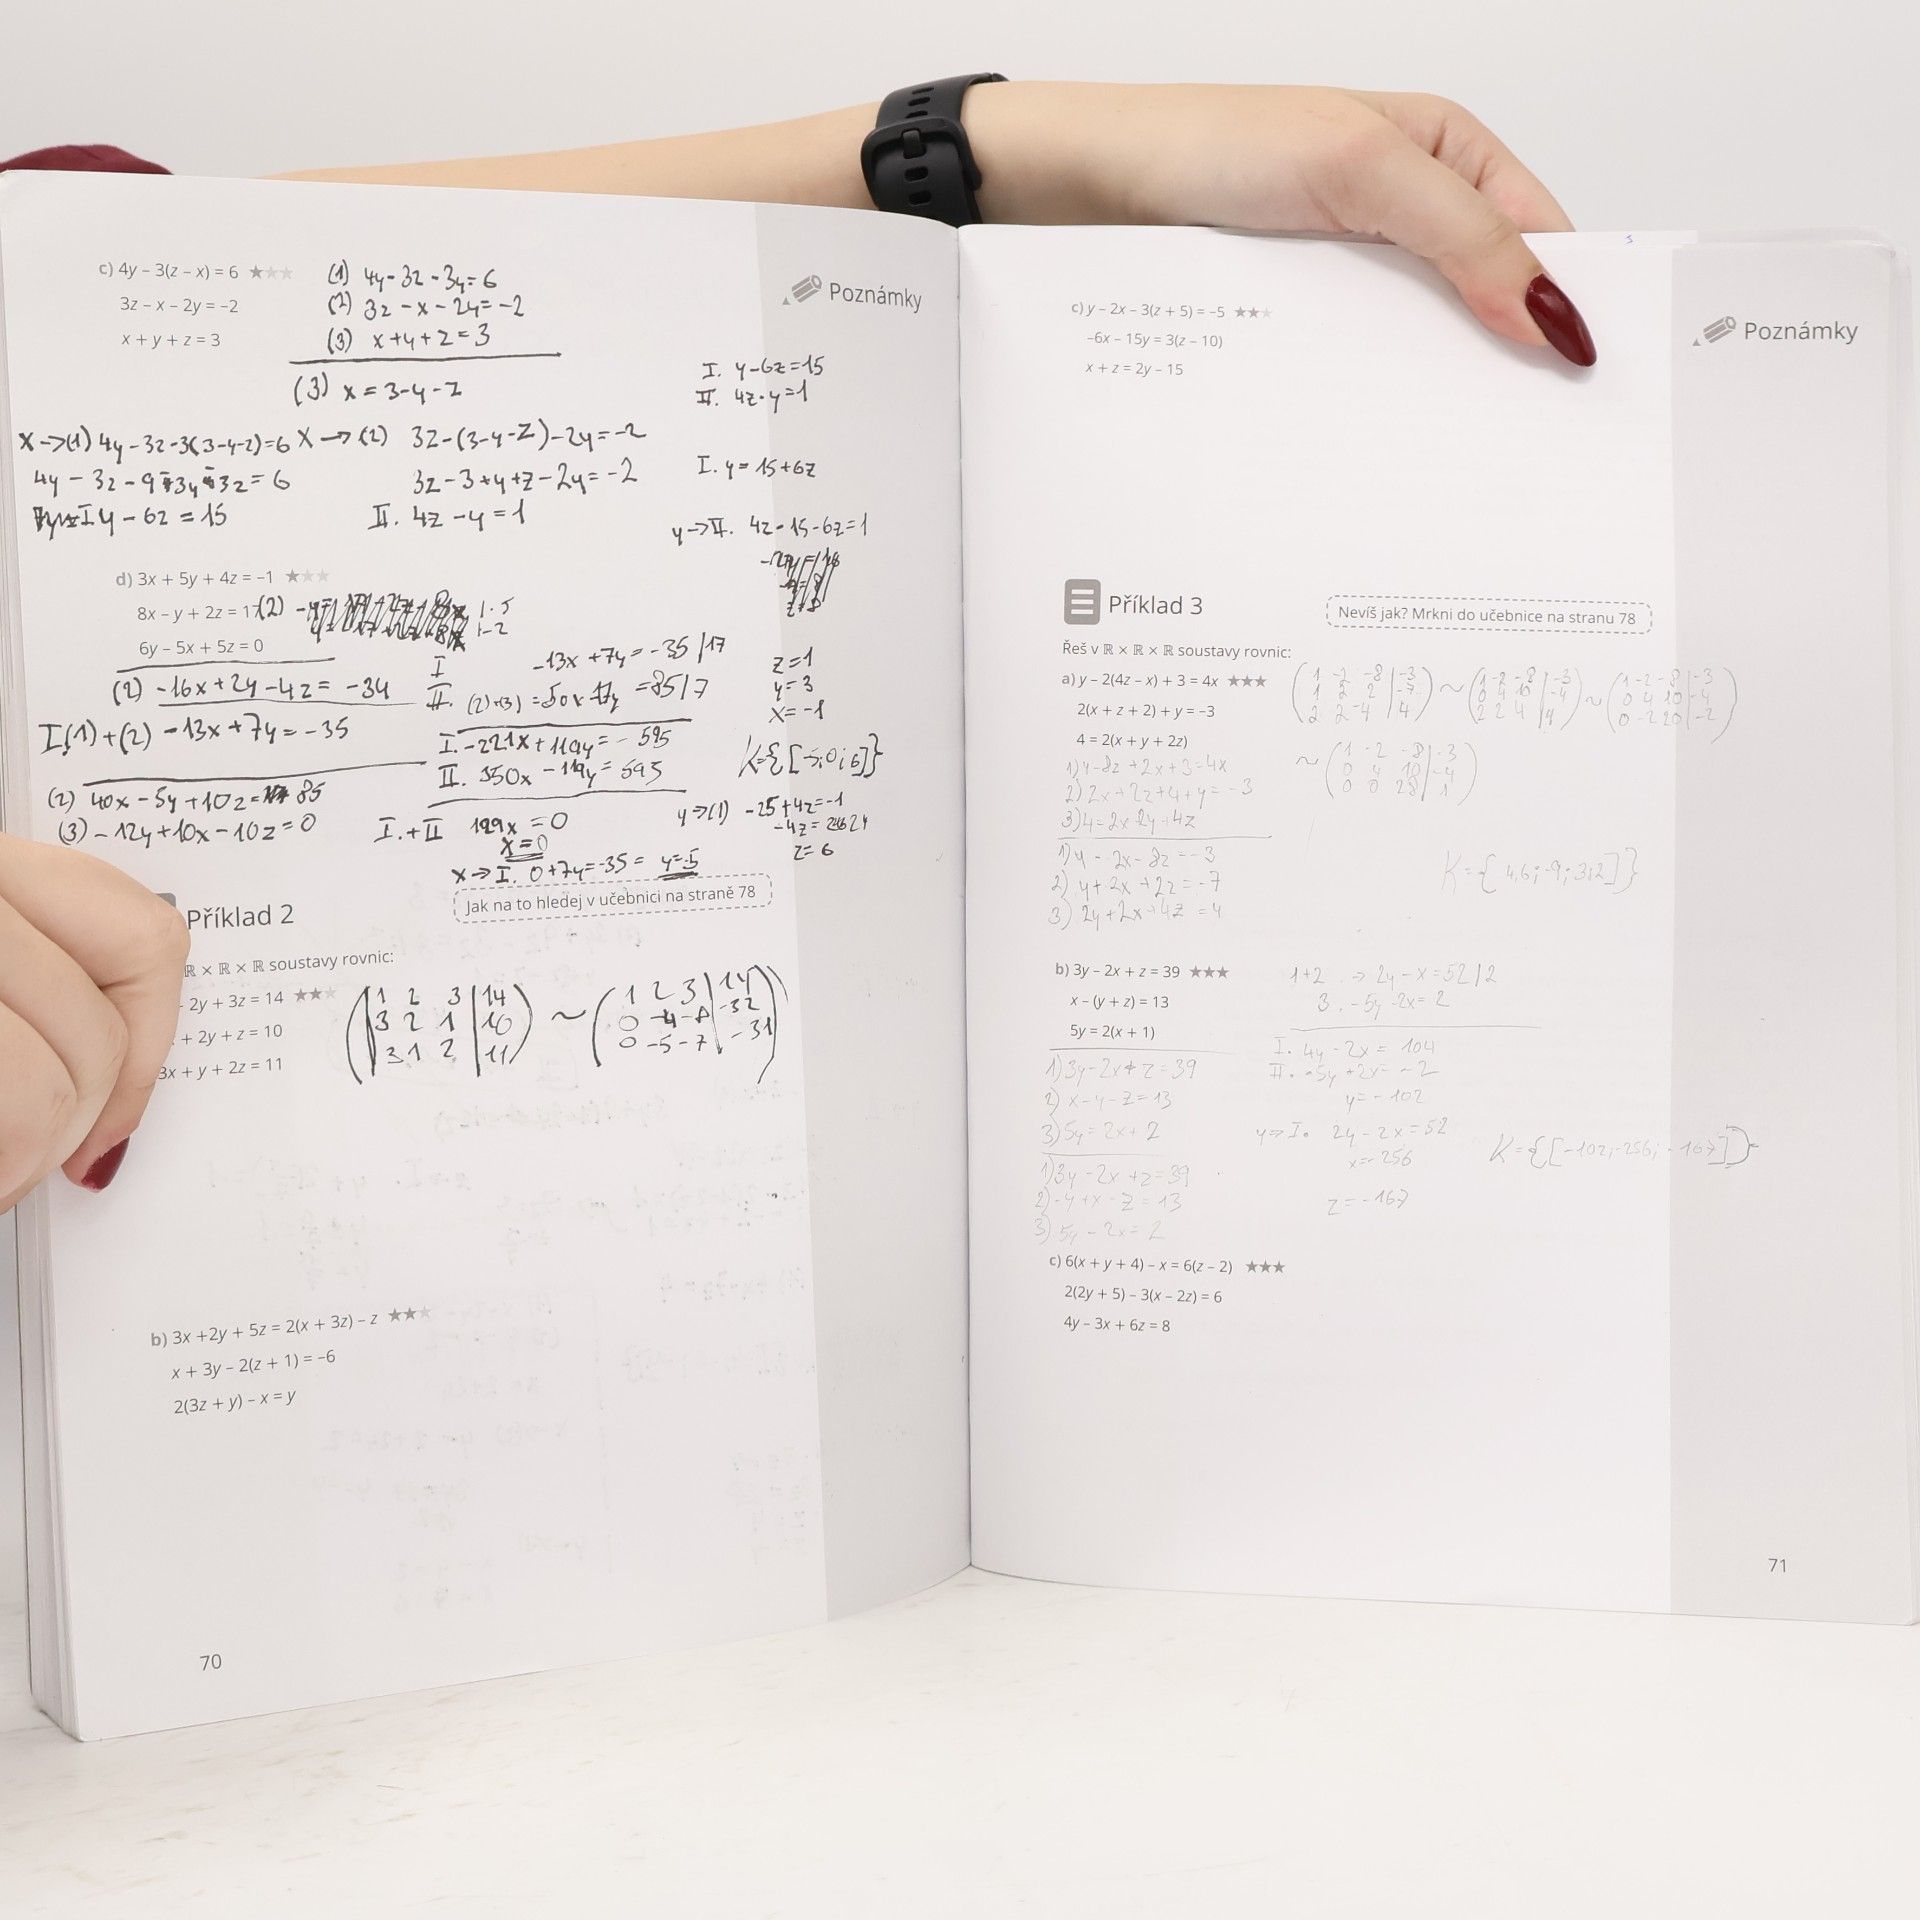 c) 4y – 3(z – x) = 6
3z – x – 2y = –2
x + y + z = 3
(1) 4y-3z-3y=6
(2) 3z-x-2y=-2
(3) x+y+z=3
(3) x=3-y-z
x->(1) 4y-3z-3(3-y-z)=6
4y-3z-9+3y+3z=6
I y-6z=15
x->(2) 3z-(3-y-z)-2y=-2
3z-3+y+z-2y=-2
II. 4z-y=1
Poznámky
I. y-6z=15
II. 4z-y=1
I. y=15+6z
y->II. 4z-15-6z=1
z=1
y=3
x=-1
d) 3x + 5y + 4z = –1
8x – y + 2z = 17
6y – 5x + 5z = 0
(2) -16x+2y-4z=-34
I (1)+(2) -13x+7y=-35
(2) 40x-5y+10z=85
(3) -12y+10x-10z=0
I -13x+7y=-35 /17
II. (2)+(3)=50x-17y=85/7
I. -221x+119y=-595
II. 350x-119y=595
I.+II 129x=0
x=0
x->I. 0+7y=-35= y=-5
K={[-5;0;6]}
y->(1) -25+4z=-1
z=6
Příklad 2
Jak na to hledej v učebnici na straně 78
ℝ × ℝ × ℝ soustavy rovnic:
- 2y + 3z = 14
+ 2y + z = 10
3x + y + 2z = 11
(1 2 3 | 14) ~ (1 2 3 | 14)
(3 2 1 | 10) (0 -4 -8 | -32)
(3 1 2 | 11) (0 -5 -7 | -31)
b) 3x +2y + 5z = 2(x + 3z) – z
x + 3y – 2(z + 1) = –6
2(3z + y) – x = y
70
c) y – 2x – 3(z + 5) = –5
–6x – 15y = 3(z – 10)
x + z = 2y – 15
Poznámky
Příklad 3
Nevíš jak? Mrkni do učebnice na stranu 78
Řeš v ℝ × ℝ × ℝ soustavy rovnic:
a) y – 2(4z – x) + 3 = 4x
2(x + z + 2) + y = –3
4 = 2(x + y + 2z)
1) y-8z+2x+3=4x
2) 2x+2z+4+y=-3
3) 4=2x+2y+4z
1) y-2x-8z=-3
2) y+2x+2z=-7
3) 2y+2x+4z=4
(1 -2 -8 | -3) ~ (1 -2 -8 | -3) ~ (1 -2 -8 | -3)
(1 2 2 | -7) (0 4 10 | -4) (0 4 10 | -4)
(2 2 -4 | 4) (2 2 4 | 4) (0 -2 20 | -2)
~ (1 -2 -8 | -3)
(0 4 10 | -4)
(0 0 28 | 1)
K={4,6;-9;3;2]}
b) 3y – 2x + z = 39
x – (y + z) = 13
5y = 2(x + 1)
1) 3y-2x+z=39
2) x-y-z=13
3) 5y=2x+2
1) 3y-2x+z=39
2) -y+x-z=13
3) 5y-2x=2
1+2 -> 2y-x=52/2
3. -5y-2x=2
I. 4y-2x=104
II. -5y+2x=-2
y=-102
y=>I. 2y-2x=52
x=-256
z=-167
K={[-102;-256;-167]}
c) 6(x + y + 4) – x = 6(z – 2)
2(2y + 5) – 3(x – 2z) = 6
4y – 3x + 6z = 8
71